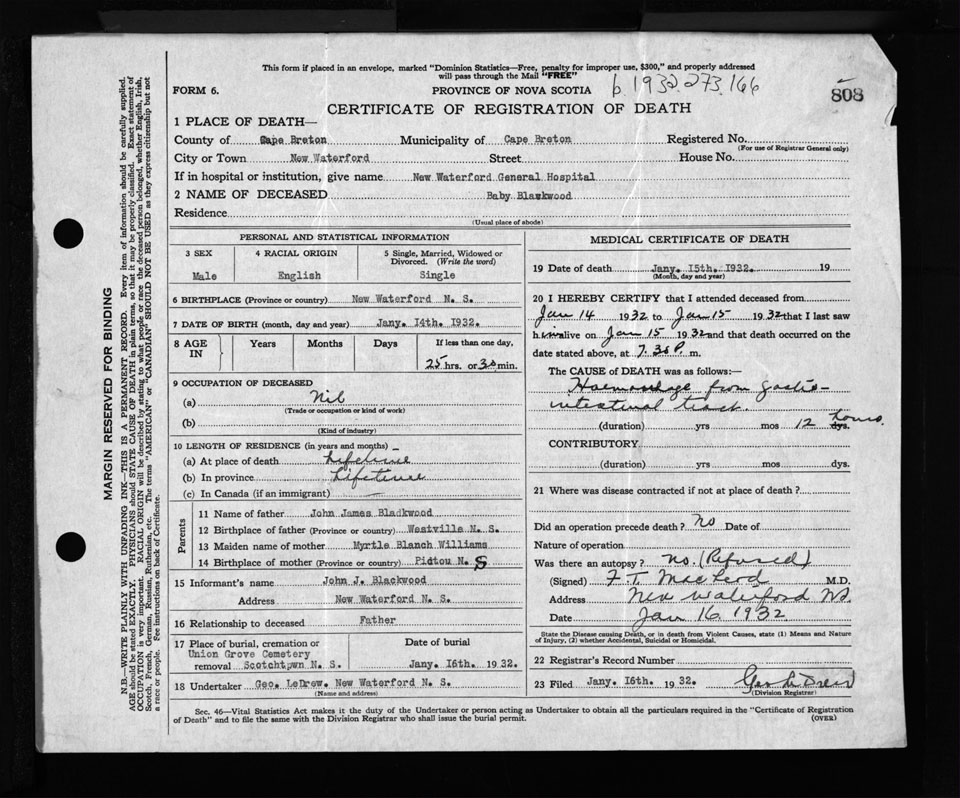 This form if placed in an envelope, marked "Dominion Statistics—Free, penalty for improper use, $300," and properly addressed
will pass through the Mail "FREE"
b. 1932.273.166
808
FORM 6.
PROVINCE OF NOVA SCOTIA
CERTIFICATE OF REGISTRATION OF DEATH
1 PLACE OF DEATH—
County of Cape Breton Municipality of Cape Breton Registered No.
(For use of Registrar General only)
City or Town New Waterford Street House No.
If in hospital or institution, give name New Waterford General Hospital
2 NAME OF DECEASED Baby Blackwood
Residence
(Usual place of abode)
PERSONAL AND STATISTICAL INFORMATION
3 SEX 4 RACIAL ORIGIN 5 Single, Married, Widowed or
Divorced. (Write the word)
Male English Single
6 BIRTHPLACE (Province or country) New Waterford N. S.
7 DATE OF BIRTH (month, day and year) Jany. I4th. I932.
8 AGE IN Years Months Days If less than one day,
25 hrs. or 30 min.
9 OCCUPATION OF DECEASED
(a) Nil
(Trade or occupation or kind of work)
(b)
(Kind of industry)
10 LENGTH OF RESIDENCE (in years and months)
(a) At place of death Lifetime
(b) In province Lifetime
(c) In Canada (if an immigrant) —
Parents
11 Name of father John James Bladkwood
12 Birthplace of father (Province or country) Westville N. S.
13 Maiden name of mother Myrtle Blanch Williams
14 Birthplace of mother (Province or country) Pidtou N. S
15 Informant's name John J. Blackwood
Address New Waterford N. S.
16 Relationship to deceased Father
17 Place of burial, cremation or Date of burial
Union Grove Cemetery
removal Scotchtpwn N. S. Jany. I6th. 1932.
18 Undertaker Geo. LeDrew. New Waterford N. S.
(Name and address)
MEDICAL CERTIFICATE OF DEATH
19 Date of death Jany. I5th. I932. 19
(Month, day and year)
20 I HEREBY CERTIFY that I attended deceased from
Jan 14 1932 to Jan 15 1932 that I last saw
him alive on Jan 15 1932 and that death occurred on
date stated above, at 7.30 P. m.
The CAUSE of DEATH was as follows:—
Haemorrhage from gastro-
intestinal tract.
(duration) yrs mos 12 hours dys.
CONTRIBUTORY
(duration) yrs mos. dys.
21 Where was disease contracted if not at place of death?
Did an operation precede death? no Date of
Nature of operation
Was there an autopsy? no. (Refused)
(Signed) F. T. MacLeod M.D.
Address New Waterford NS.
Date Jan 16. 1932
State the Disease causing Death, or in death from Violent Causes, state (1) Means and Nature
of Injury, (2) whether Accidental, Suicidal or Homicidal.
22 Registrar's Record Number
23 Filed Jany. I6th. 1932. Geo LeDrew
(Division Registrar)
Sec. 46—Vital Statistics Act makes it the duty of the Undertaker or person acting as Undertaker to obtain all the particulars required in the "Certificate of Registration
of Death" and to file the same with the Division Registrar who shall issue the burial permit.
(OVER)
MARGIN RESERVED FOR BINDING
N.B.—WRITE PLAINLY WITH UNFADING INK—THIS IS A PERMANENT RECORD. Every item of information should be carefully supplied.
AGE should be stated EXACTLY. PHYSICIANS should STATE CAUSE OF DEATH in plain terms, so that it may be properly classified. Exact statement of
OCCUPATION is very important. RACIAL ORIGIN will be described by stating to what people or race the deceased person belonged, whether English, Irish,
Scotch, French, German, Russian, Ruthenian, etc. The terms "AMERICAN" or "CANADIAN" SHOULD NOT BE USED as they express citizenship but not
a race or people. See instructions on back of Certificate.